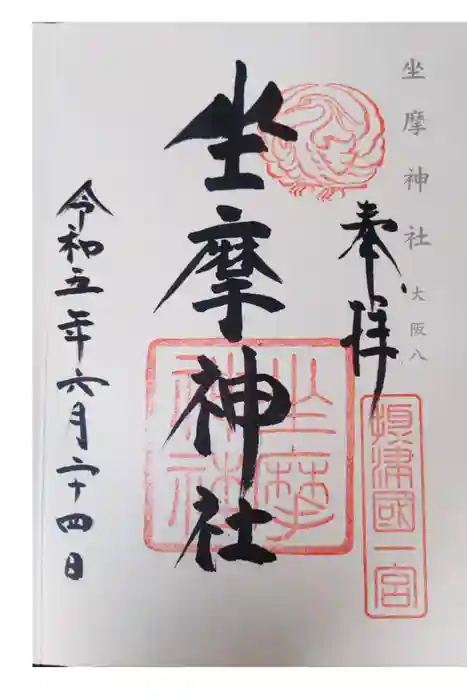 坐摩神社 大阪八
奉拝
摂津國一宮
坐摩神社
坐摩神社
令和五年六月二十四日